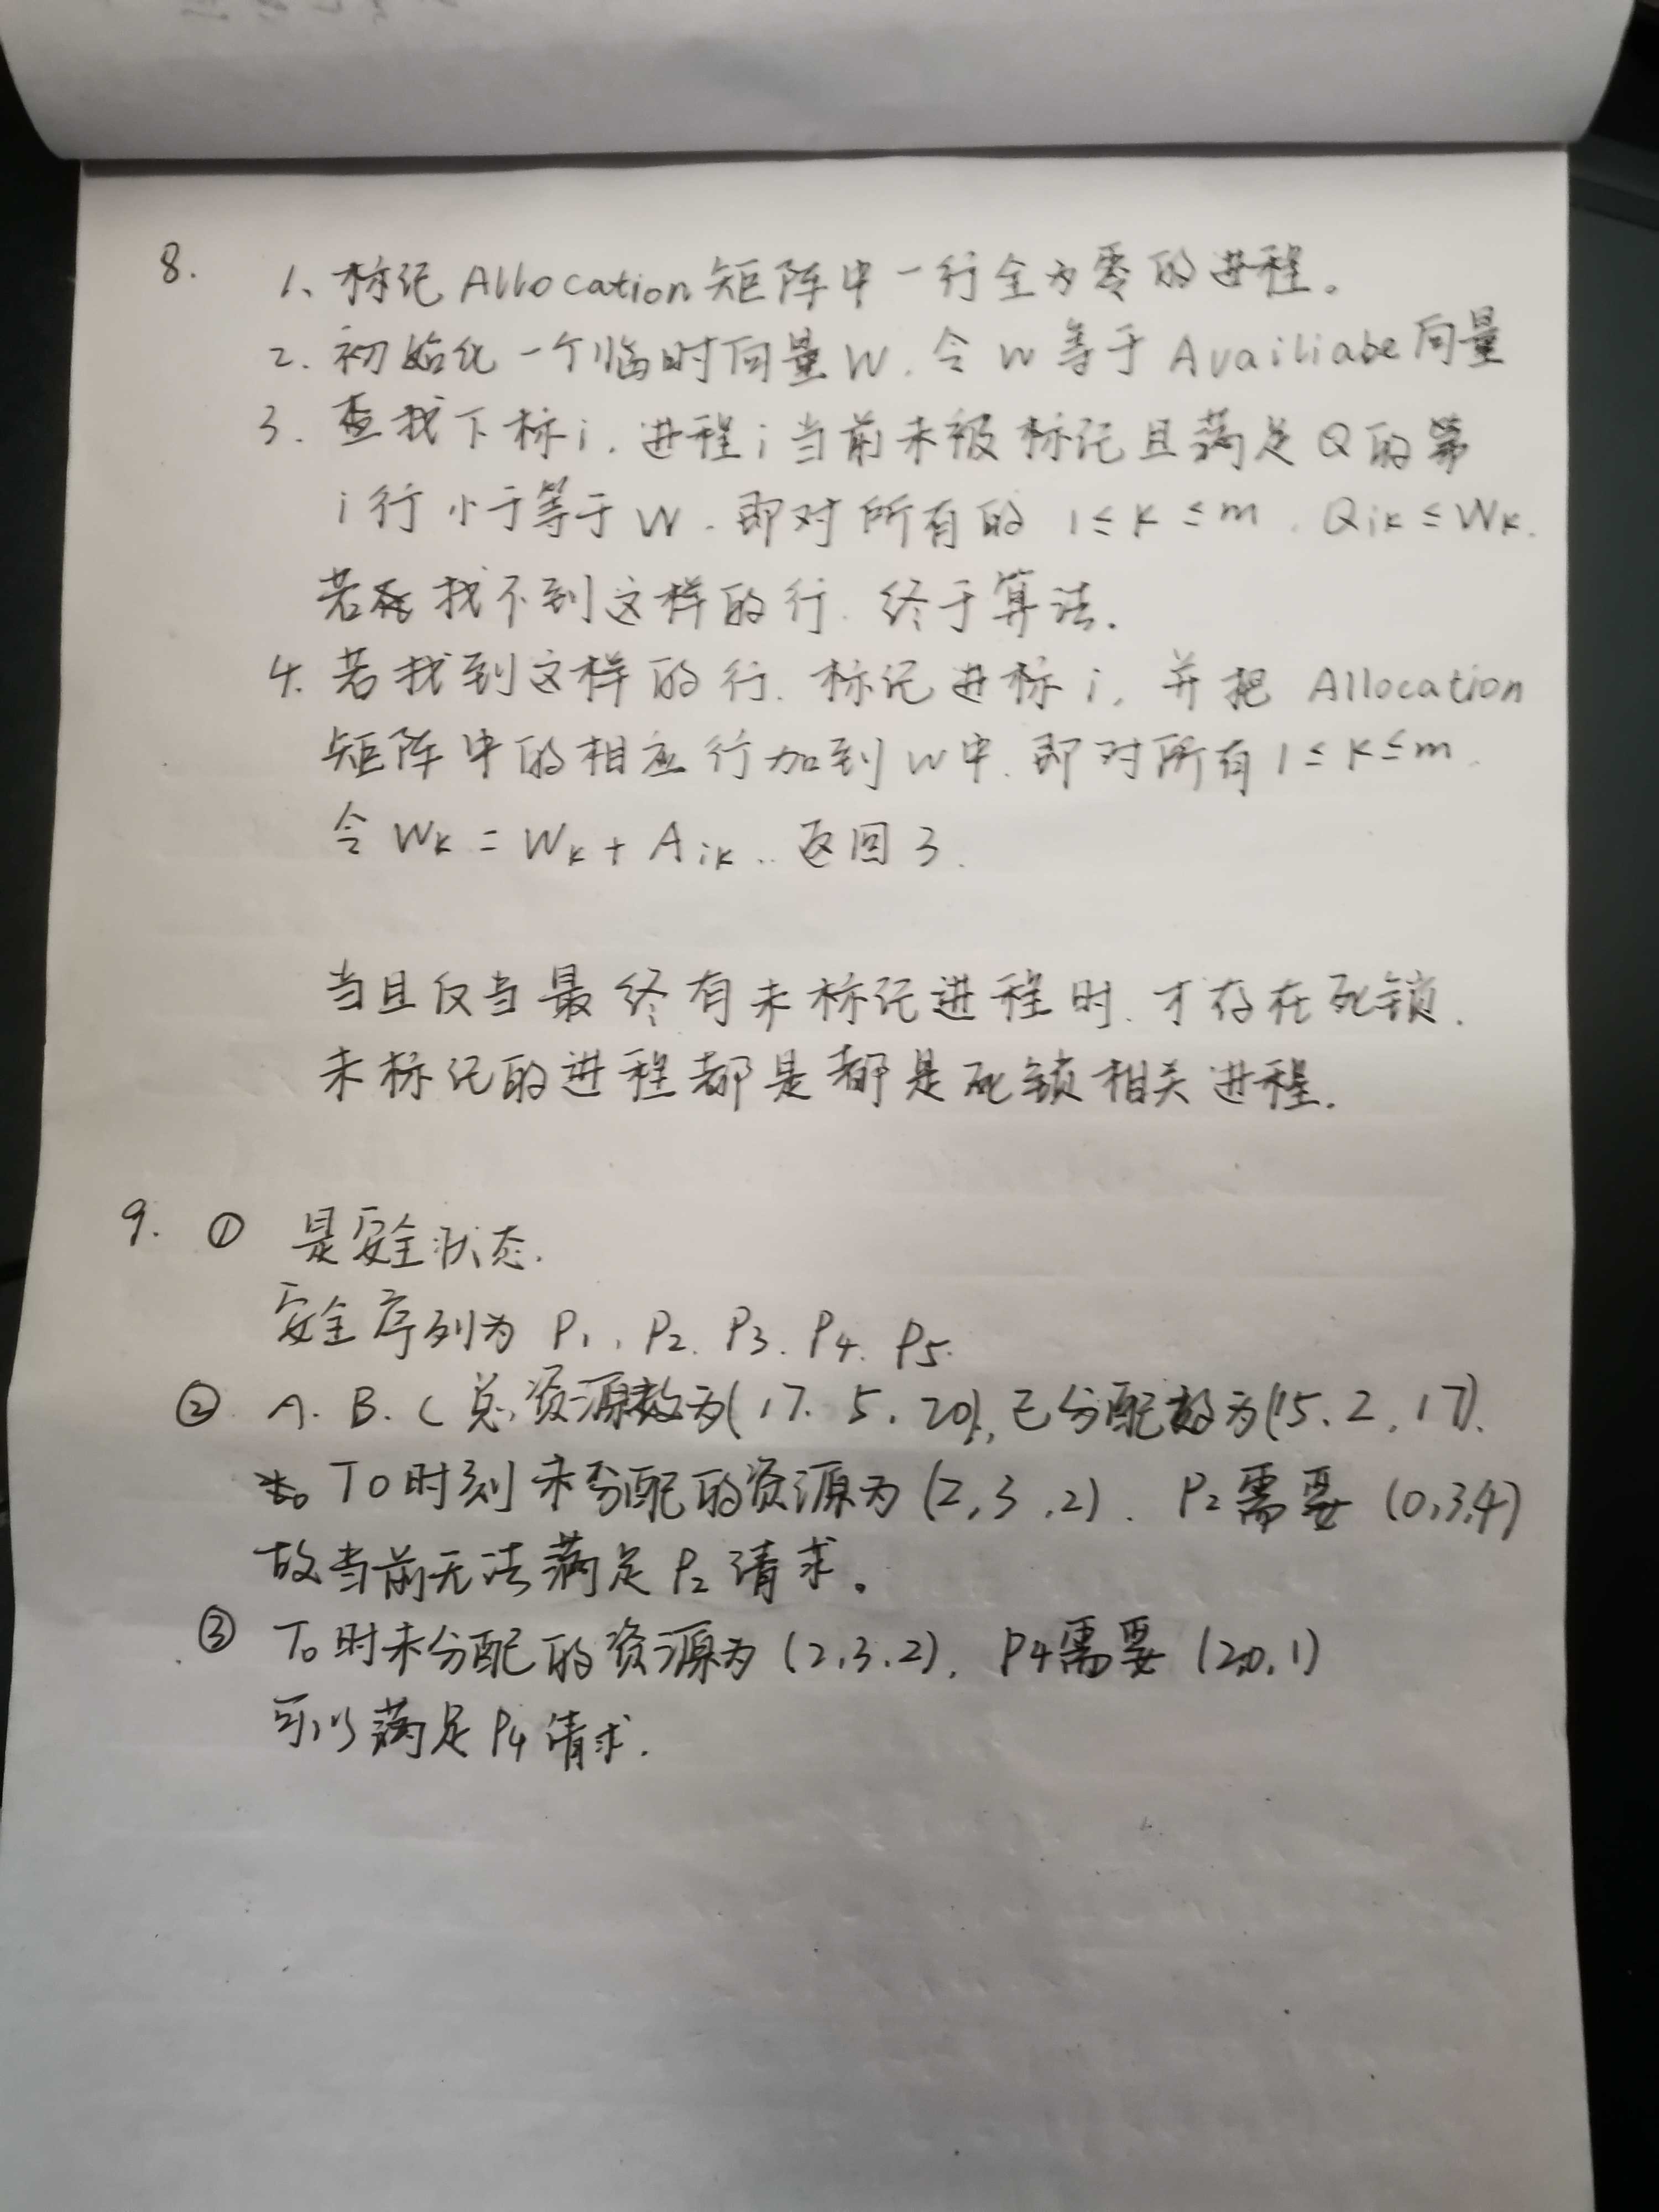 8. 1、标记 Allocation 矩阵中一行全为零的进程。
2. 初始化一个临时向量W. 令W等于Availiabe向量
3. 查找下标i. 进程i当前未被标记且满足Q的第
i行小于等于W. 即对所有的 1≤K≤m. Qik≤Wk.
若 找不到这样的行. 终于算法.
4. 若找到这样的行. 标记进标i, 并把 Allocation
矩阵中的相应行加到W中. 即对所有1≤K≤m.
令Wk = Wk + Aik.. 返回3.
当且仅当最终有未标记进程时. 才存在死锁.
未标记的进程都是都是死锁相关进程.
9. ① 是安全状态.
安全序列为 P1, P2. P3. P4. P5.
② A. B. C总资源数为(17. 5. 20), 已分配数为(15. 2. 17).
T0时刻未分配的资源为(2, 3, 2). P2需要(0,3,4)
故当前无法满足P2请求。
③ T0时未分配的资源为(2,3,2), P4需要(2,0,1)
可以满足P4请求.